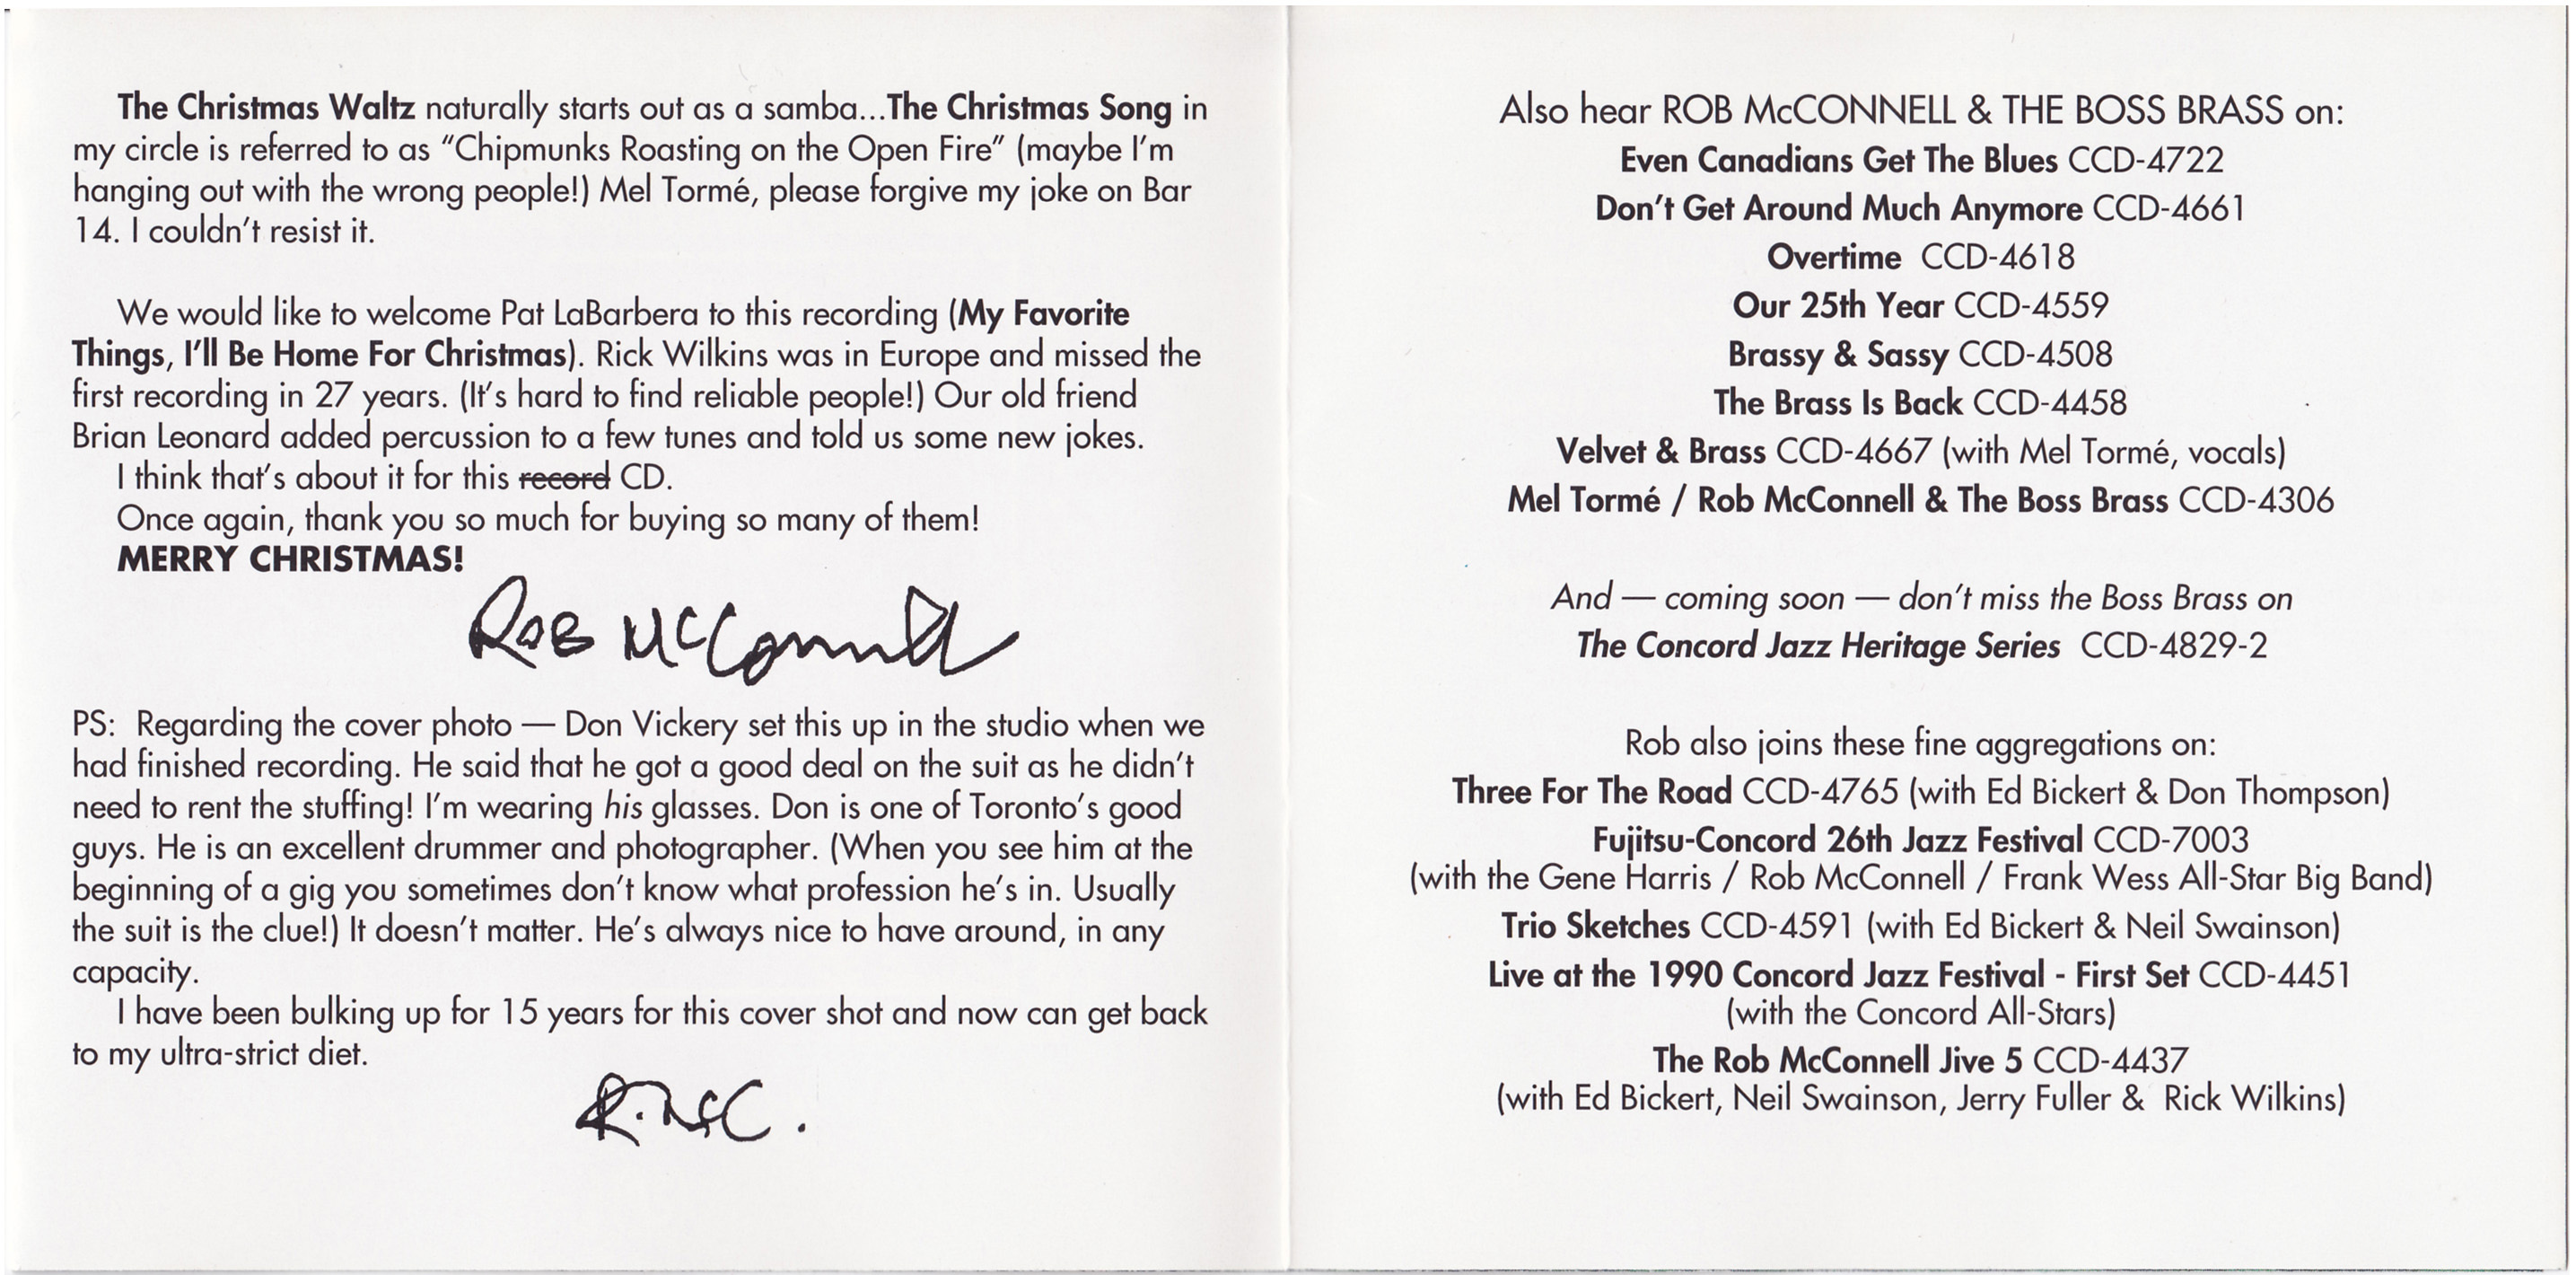 The Christmas Waltz naturally starts out as a samba...The Christmas Song in
my circle is referred to as “Chipmunks Roasting on the Open Fire” (maybe I’m
hanging out with the wrong people!) Mel Tormé, please forgive my joke on Bar
14. I couldn’t resist it.
We would like to welcome Pat LaBarbera to this recording (My Favorite
Things, I’ll Be Home For Christmas). Rick Wilkins was in Europe and missed the
first recording in 27 years. (It’s hard to find reliable people!) Our old friend
Brian Leonard added percussion to a few tunes and told us some new jokes.
I think that’s about it for this record CD.
Once again, thank you so much for buying so many of them!
MERRY CHRISTMAS!
Rob McConnell
PS: Regarding the cover photo — Don Vickery set this up in the studio when we
had finished recording. He said that he got a good deal on the suit as he didn’t
need to rent the stuffing! I’m wearing his glasses. Don is one of Toronto’s good
guys. He is an excellent drummer and photographer. (When you see him at the
beginning of a gig you sometimes don’t know what profession he’s in. Usually
the suit is the clue!) It doesn’t matter. He’s always nice to have around, in any
capacity.
I have been bulking up for 15 years for this cover shot and now can get back
to my ultra-strict diet.
R.McC.
Also hear ROB McCONNELL & THE BOSS BRASS on:
Even Canadians Get The Blues CCD-4722
Don’t Get Around Much Anymore CCD-4661
Overtime CCD-4618
Our 25th Year CCD-4559
Brassy & Sassy CCD-4508
The Brass Is Back CCD-4458
Velvet & Brass CCD-4667 (with Mel Tormé, vocals)
Mel Tormé / Rob McConnell & The Boss Brass CCD-4306
And — coming soon — don’t miss the Boss Brass on
The Concord Jazz Heritage Series CCD-4829-2
Rob also joins these fine aggregations on:
Three For The Road CCD-4765 (with Ed Bickert & Don Thompson)
Fujitsu-Concord 26th Jazz Festival CCD-7003
(with the Gene Harris / Rob McConnell / Frank Wess All-Star Big Band)
Trio Sketches CCD-4591 (with Ed Bickert & Neil Swainson)
Live at the 1990 Concord Jazz Festival - First Set CCD-4451
(with the Concord All-Stars)
The Rob McConnell Jive 5 CCD-4437
(with Ed Bickert, Neil Swainson, Jerry Fuller & Rick Wilkins)